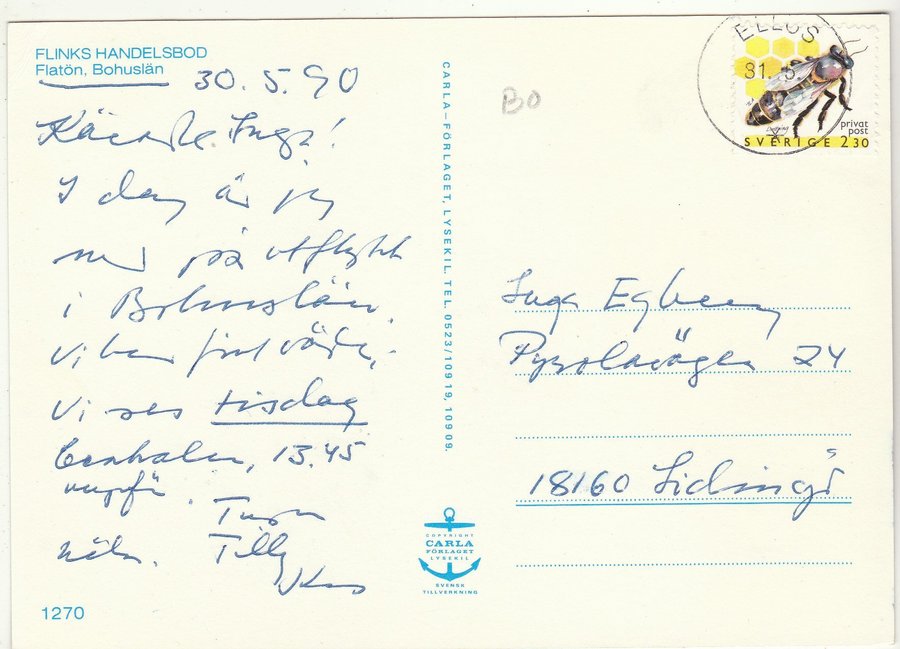 FLINKS HANDELSBOD
Flatön, Bohuslän
30.5.90
Kära Inga!
I dag är jag
med på utflykt
i Bohuslän.
Vi har fint väder.
Vi ses tisdag
Centralen, 13.45
uppför.
Tilly
1270
CARLA-FÖRLAGET, LYSEKIL. TEL. 0523/109 19, 109 09.
COPYRIGHT
CARLA
FÖRLAGET
LYSEKIL
SVENSK
TILLVERKNING
BO
ELLÖS
31.5
privat
post
SVERIGE 2.30
Inga Egberg
Pyrolavägen 24
18160 Lidingö